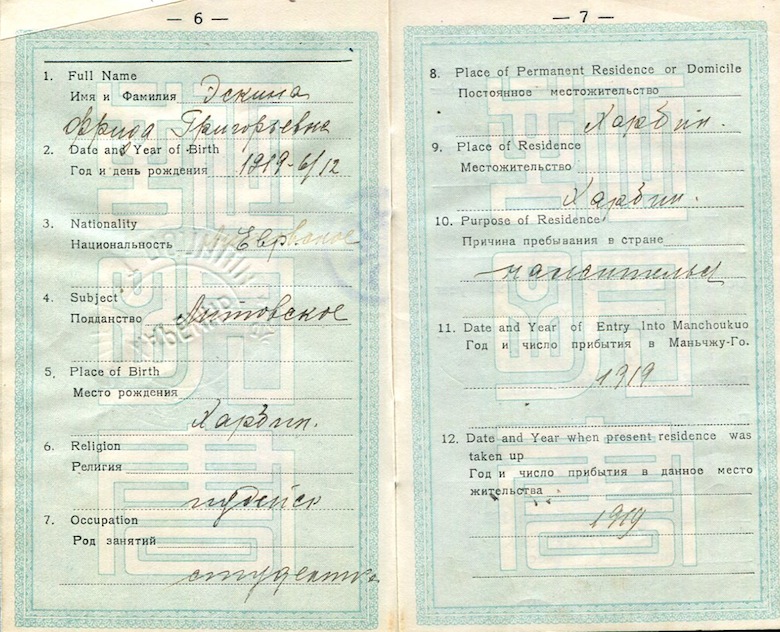 — 6 —
1. Full Name
Имя и Фамилия Эскина
Фрида Григорьевна
2. Date and Year of Birth
Год и день рождения 1919-6/12
3. Nationality
Национальность
4. Subject
Подданство Литовское
5. Place of Birth
Место рождения
Харбин.
6. Religion
Религия
иудейск
7. Occupation
Род занятий
студентка
— 7 —
8. Place of Permanent Residence or Domicile
Постоянное местожительство
Харбин.
9. Place of Residence
Местожительство
Харбин.
10. Purpose of Residence
Причина пребывания в стране
11. Date and Year of Entry Into Manchoukuo
Год и число прибытия в Маньчжу-Го.
1919
12. Date and Year when present residence was
taken up
Год и число прибытия в данное место
жительства
1919